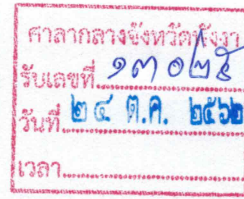 ศาลากลางจังหวัดพังงา
รับเลขที่ ๑๓๐๒๕
วันที่ ๒๔ ต.ค. ๒๕๖๒
เวลา